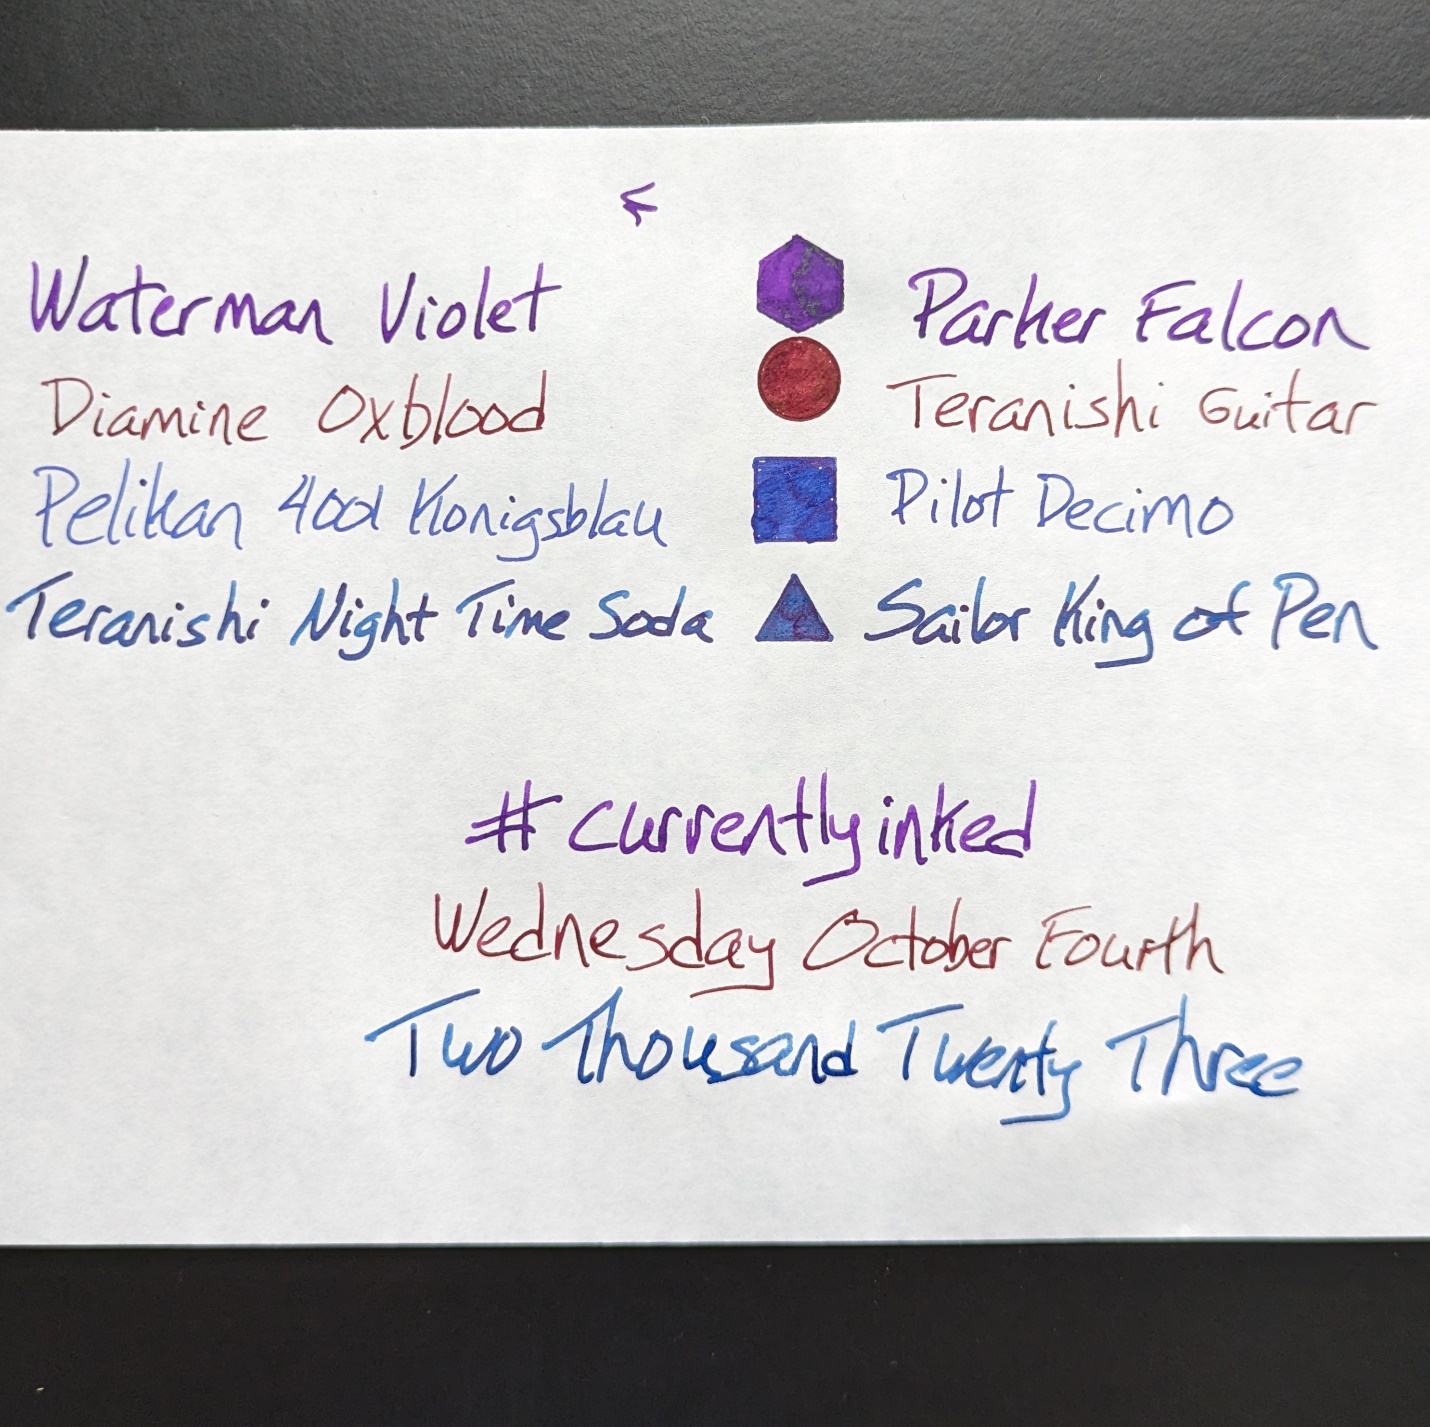 Waterman Violet Parker Falcon
Diamine Oxblood Teranishi Guitar
Pelikan 4001 Konigsblau Pilot Decimo
Teranishi Night Time Soda Sailor King of Pen
#currentlyinked
Wednesday October Fourth
Two Thousand Twenty Three